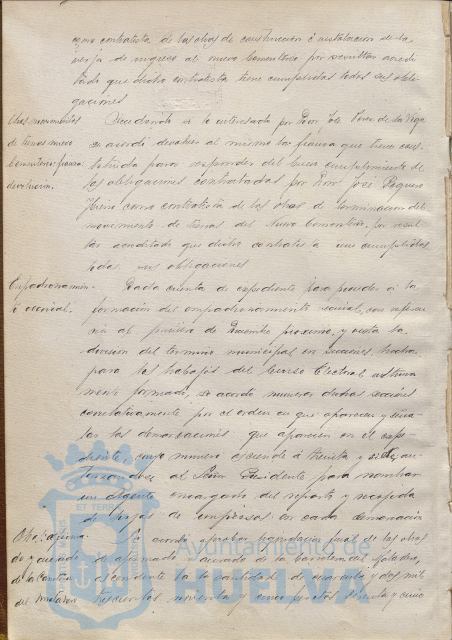 como contratista de las obras de construcción é instalación de la
verja de ingreso al nuevo Cementerio por resultar acredi
tado que dicho contratista tiene cumplidas todas sus obli
gaciones
Obras movimientos
de tierras nuevo
Cementerio fianza
devolución.
Accediendo a lo interesado por Don José Perez de la Vega
se acordó devolver al mismo la fianza que tiene cons
tituida para responder del buen cumplimiento de
las obligaciones contratadas por Don José Baquero
como contratista de las obras de terminacion del
movimiento de tierras del Nuevo Cementerio, por resul
tar acreditado que dicho contratista tiene cumplidas
todas sus obligaciones
Empadronamien
to vecinal.
Dada cuenta de expediente para proceder á la
formacion del empadronamiento vecinal, con referen
cia al primero de Diciembre proximo, y vista la
division del termino municipal en secciones, hecha
para los trabajos del Censo Electoral ultima
mente formado, se acordó numerar dichas secciones
correlativamente por el orden en que aparecen y
las demarcaciones que aparecen en el expe
diente, cuyo numero asciende á treinta y siete, au
torizandose al Señor Presidente para nombrar
un agente encargado del reparto y recogida
de hojas de impresos en cada demarcación
Obras
de acerado
de la Carrera
del Matadero
Se acordó aprobar liquidacion final de las obras
de acerado de la Carretera del Matadero,
ascendente á la cantidad de cuarenta y dos mil
trescientas noventa y cinco pesetas ochenta y cinco
ET TERRA
Ayuntamiento de
HUELVA